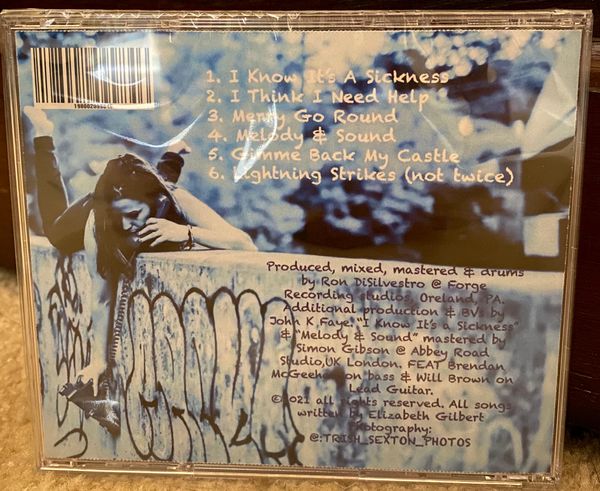 1. I Know It's A Sickness
2. I Think I Need Help
3. Merry Go Round
4. Melody & Sound
5. Gimme Back My Castle
6. Lightning Strikes (not twice)
Produced, mixed, mastered & drums
by Ron DiSilvestro @ Forge
Recording studios, Oreland, PA.
Additional production & BVs by
John K Faye. "I Know It's a Sickness"
& "Melody & Sound" mastered by
Simon Gibson @ Abbey Road
Studio,UK London. FEAT Brendan
McGeehan on bass & Will Brown on
Lead Guitar.
©2021 all rights reserved. All songs
written by Elizabeth Gilbert
Photography:
@:TRISH_SEXTON_PHOTOS